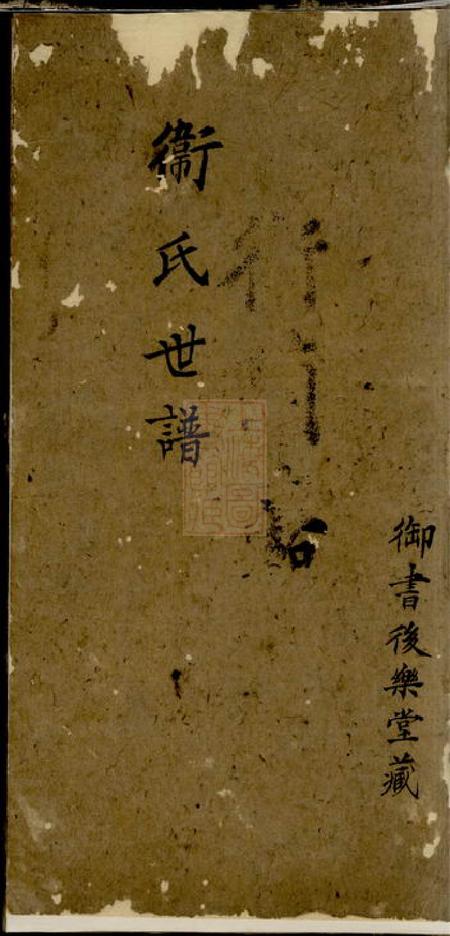 御書後樂堂藏
衞氏世譜